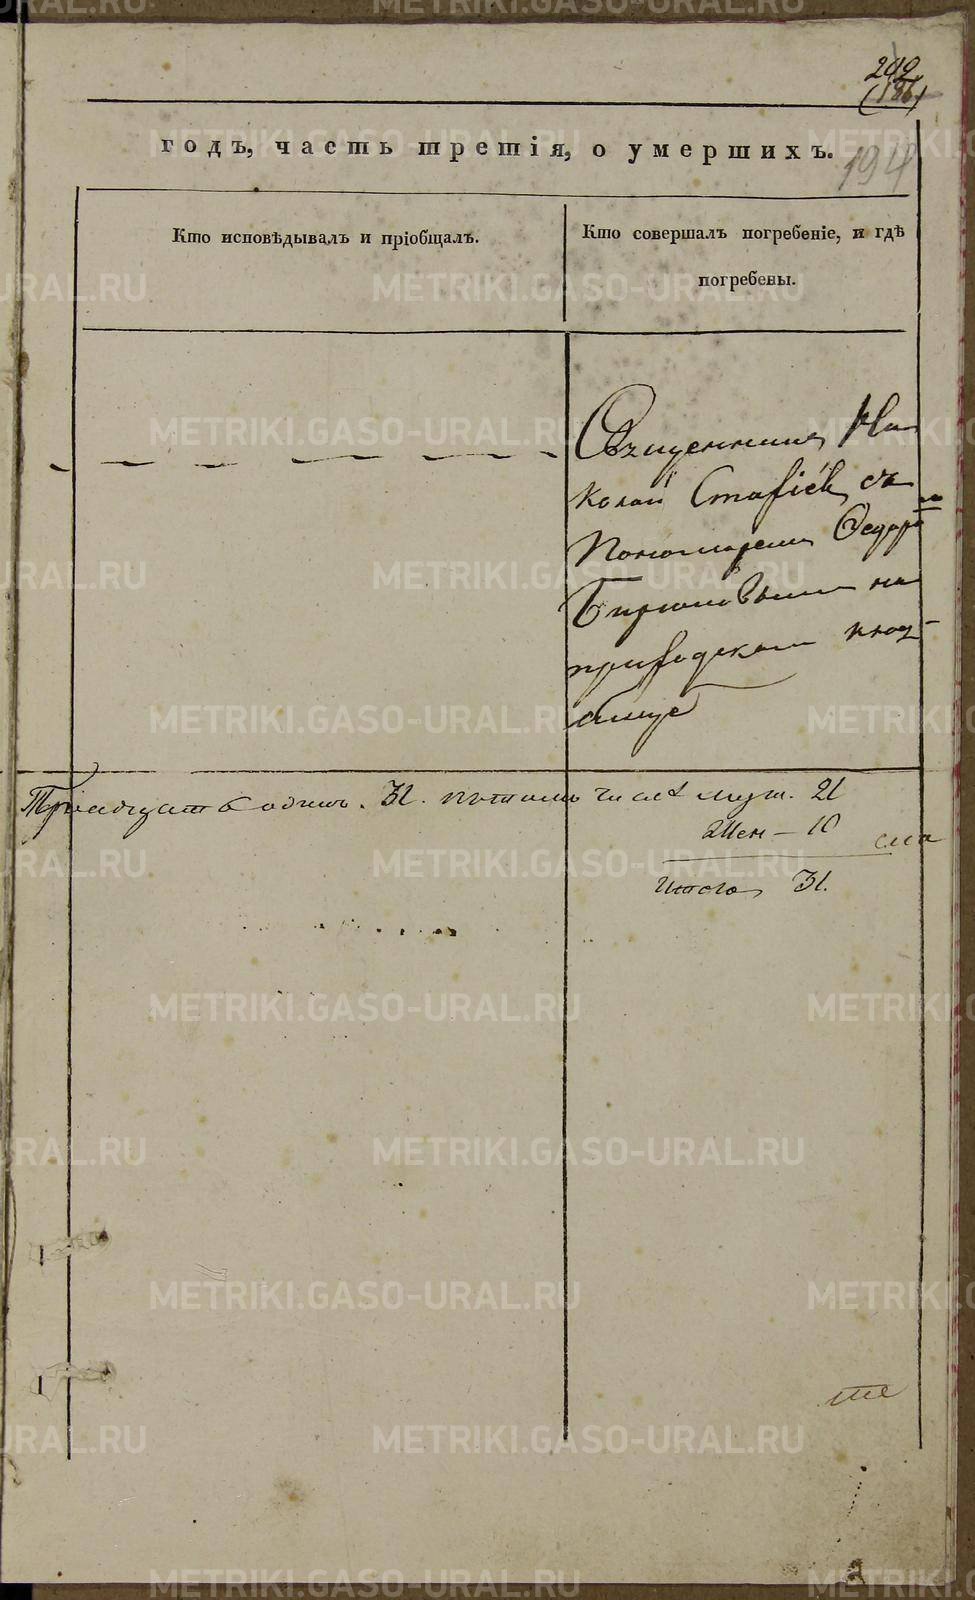 200
(186)
годъ, часть третія, о умершихъ.
194
Кто исповѣдывалъ и пріобщалъ.
Кто совершалъ погребеніе, и гдѣ
погребены.
Священникъ Ни
колай Стафіев съ
Пономаремъ Ѳедоро
мъ
на
приходскомъ клад-
бище
Тридцать одинъ. 31. въ томъ числѣ муж. 21
Жен – 10
Итого 31.
METRIKI.GASO-URAL.RU